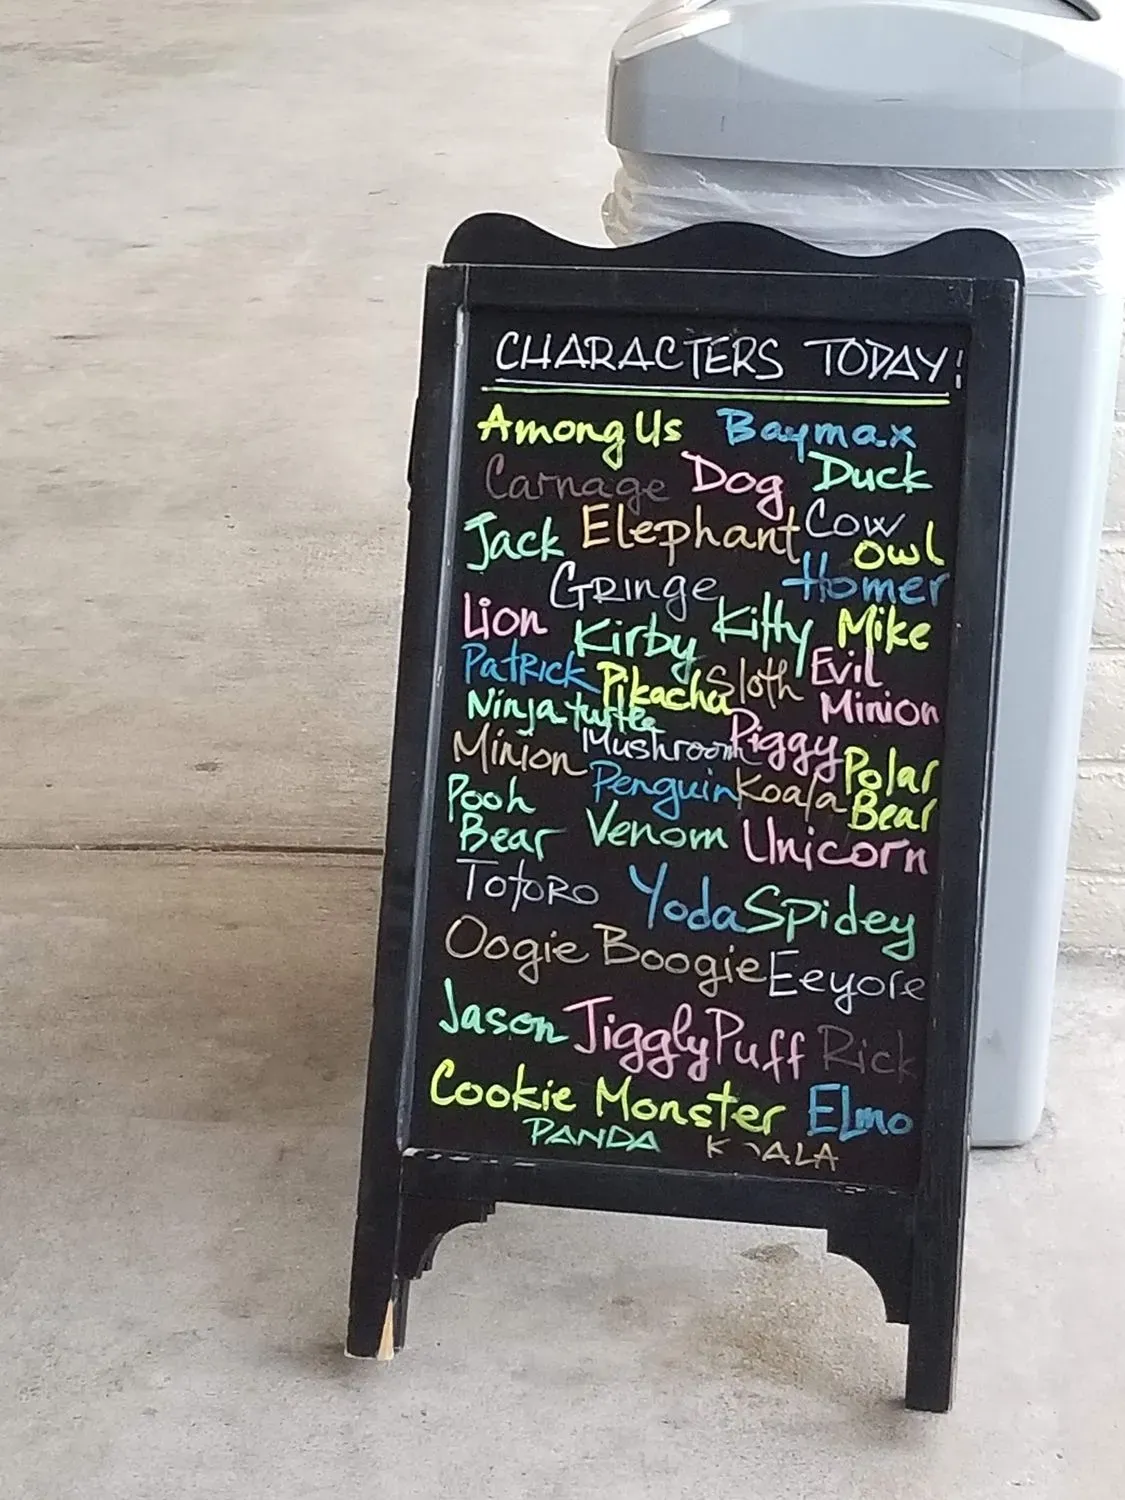 CHARACTERS TODAY!
Among Us Baymax
Carnage Dog Duck
Jack Elephant Cow
Owl
Gringe Homer
Lion Kirby Kitty Mike
Patrick Pikachu Sloth Evil
Minion
Ninja turtle
Minion Mushroom Piggy Polar
Bear
Pooh Penguin Koala
Bear Venom Unicorn
Totoro Yoda Spidey
Oogie Boogie Eeyore
Jason JigglyPuff Rick
Cookie Monster ELmo
PANDA KOALA